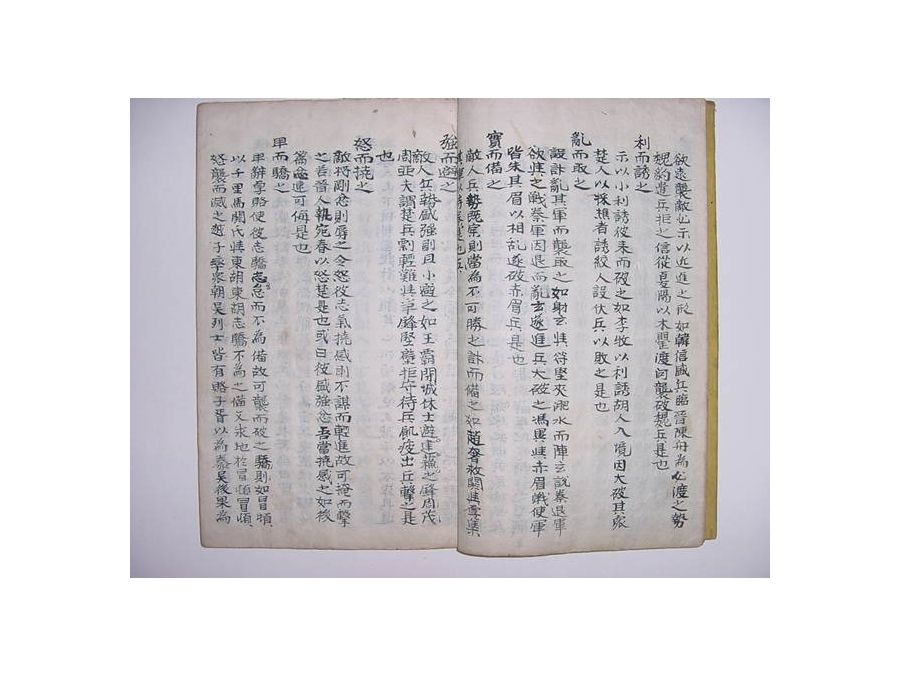 欲遠襲敵必示以近進之形如韓信盛兵臨晉陳舟為必渡之勢
魏豹遣兵拒之信從夏陽以木罌渡河襲破魏兵是也
利而誘之
示以小利誘彼来而破之如李牧以利誘胡人入境因大破其衆
楚人以採樵者誘絞人設伏兵以敗之是也
亂而取之
設計亂其軍而襲取之如謝玄與苻堅夾淝水而陣玄説秦退軍
欲與之戰秦軍因退而亂玄遂進兵大破之馮異與赤眉戰使軍
皆朱其眉以相乱遂破赤眉兵是也
實而備之
敵人兵勢既實則當為不可勝之計而備之如
強而避之
敵人兵勢盛強則且小避之如王霸閉城休士避蘇之鋒周茂
周亞夫謂楚兵剽輕難與爭鋒堅壁拒守待兵飢疲出兵擊之是
也
怒而撓之
敵將剛忿則辱之令怒彼志氣撓惑則不謀而輕進故可掩而擊
之晋人執宛春以怒楚是也或曰彼盛強忿吾當撓惑之如後
是也
卑而驕之
卑辭厚賂使彼志驕志怠而不為備故可襲而破之驕則如冒頓
以千里馬閼氏與東胡東胡志驕不為之備又求地於冒頓冒頓
怒襲而滅之越子率衆朝吳列士皆有賂子胥以為吳後果為